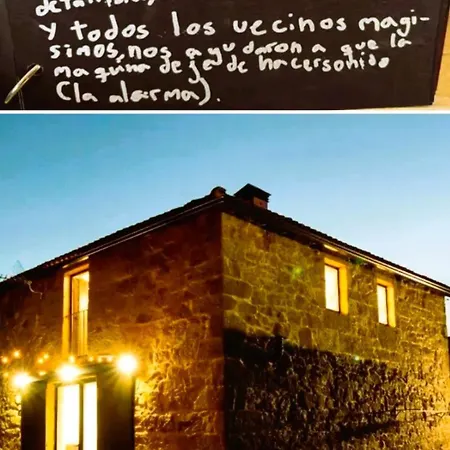 Y todos los vecinos magi-
simos, nos ayudaron a que la
maquina dejede hacersonido
(la alarma).